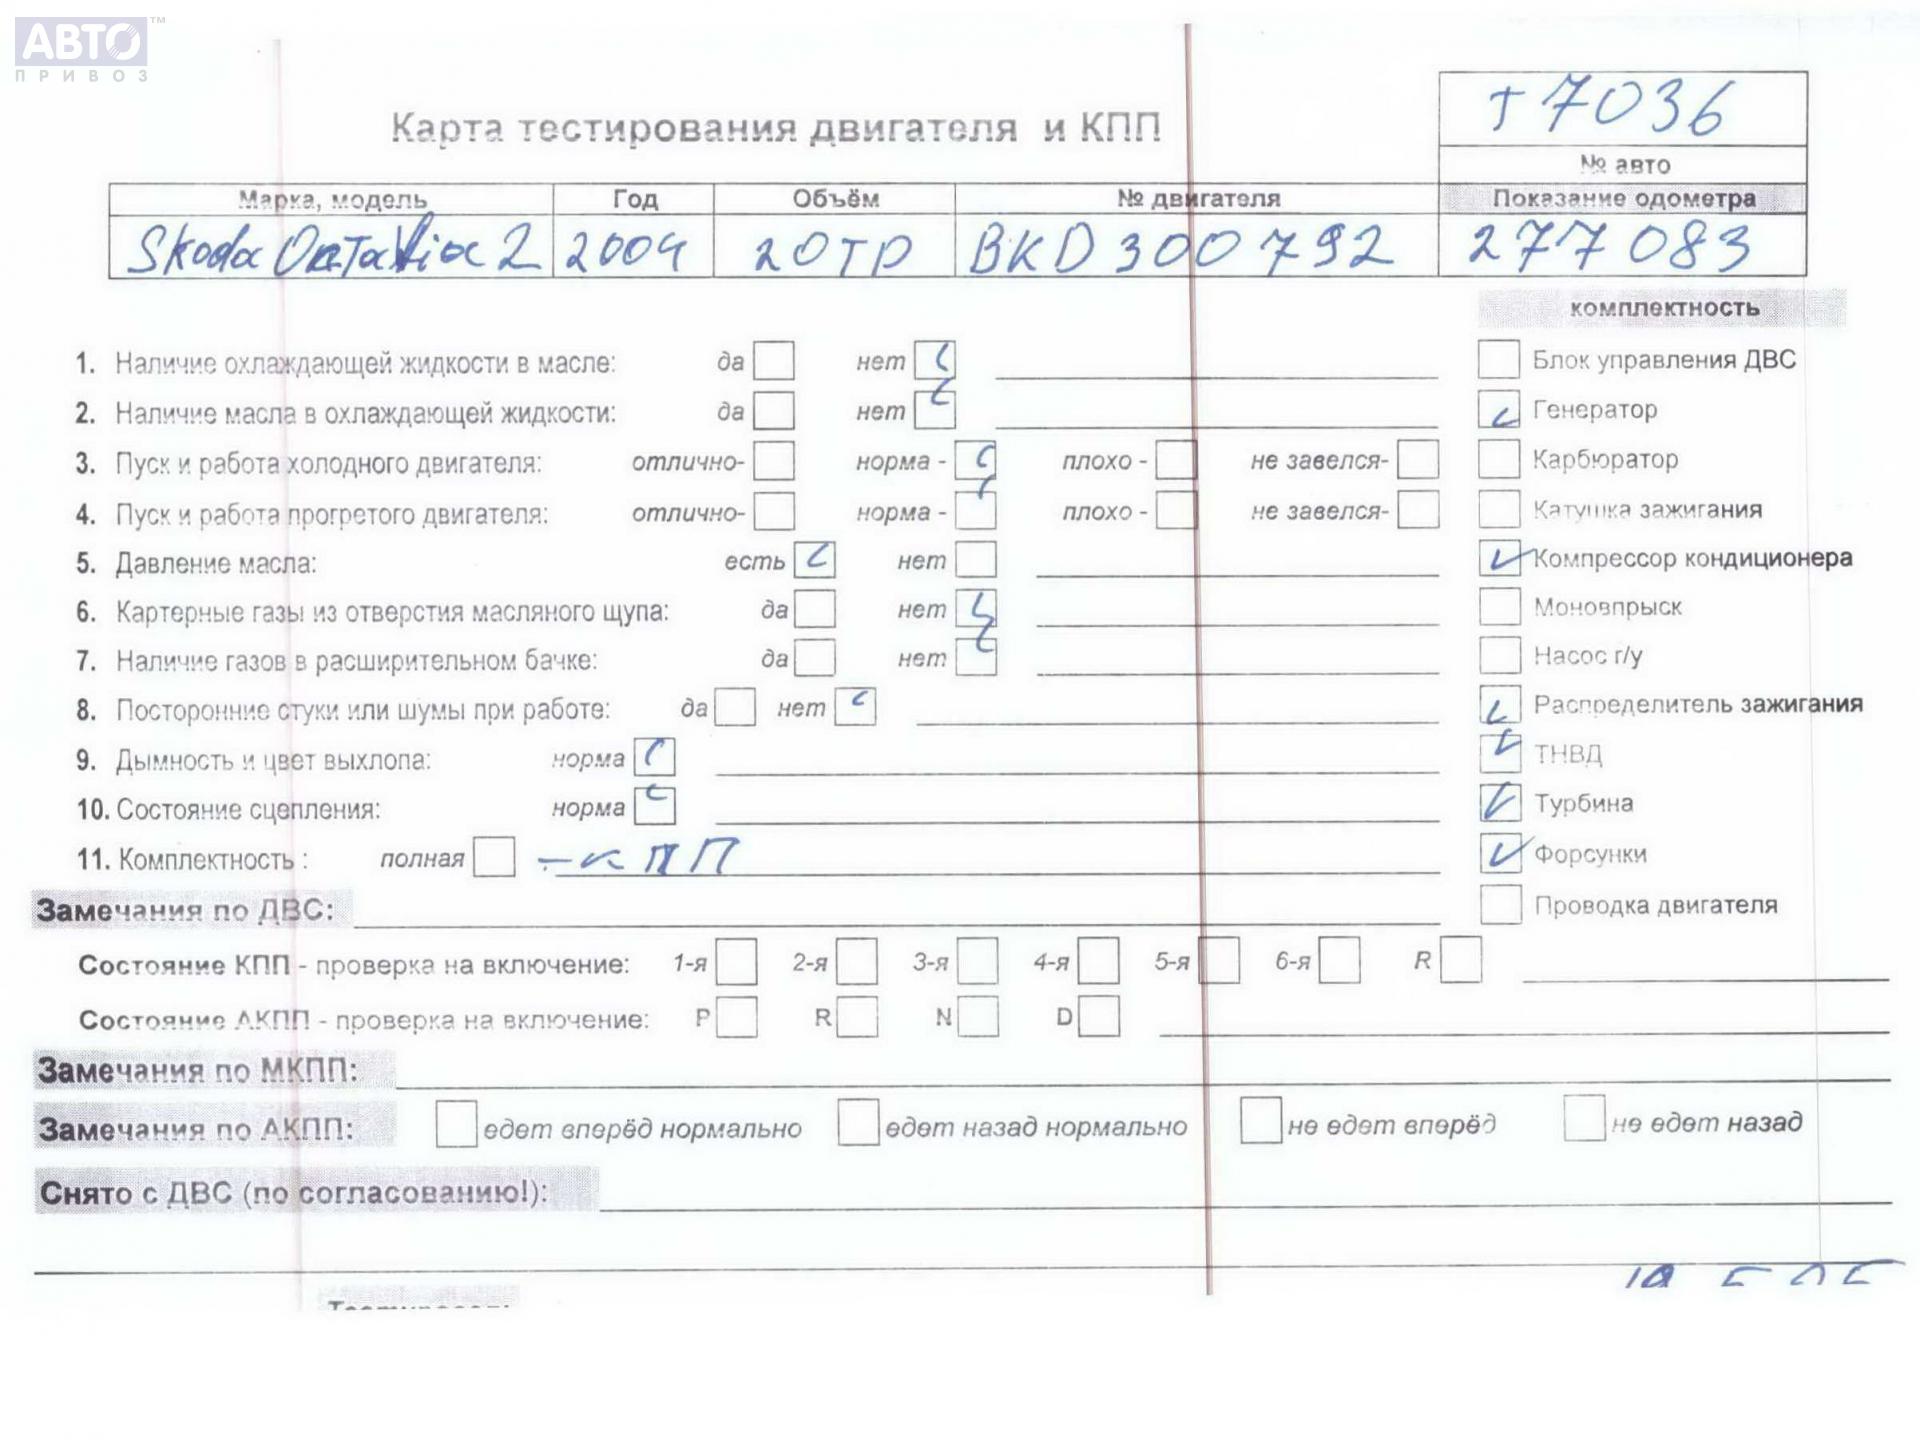 АВТО™
ПРИВОЗ
Т 7036
Карта тестирования двигателя и КПП
№ авто
Марка, модель Год Объём № двигателя Показание одометра
Skoda Octavia 2 2004 20TD BKD300792 277083
комплектность
1. Наличие охлаждающей жидкости в масле: да нет Блок управления ДВС
2. Наличие масла в охлаждающей жидкости: да нет Генератор
3. Пуск и работа холодного двигателя: отлично- норма - плохо - не завелся- Карбюратор
4. Пуск и работа прогретого двигателя: отлично- норма - плохо - не завелся- Катушка зажигания
5. Давление масла: есть нет Компрессор кондиционера
6. Картерные газы из отверстия масляного щупа: да нет Моновпрыск
7. Наличие газов в расширительном бачке: да нет Насос г/у
8. Посторонние стуки или шумы при работе: да нет Распределитель зажигания
9. Дымность и цвет выхлопа: норма ТНВД
10. Состояние сцепления: норма Турбина
11. Комплектность : полная -КПП Форсунки
Замечания по ДВС: Проводка двигателя
Состояние КПП - проверка на включение: 1-я 2-я 3-я 4-я 5-я 6-я R
Состояние АКПП - проверка на включение: P R N D
Замечания по МКПП:
Замечания по АКПП: едет вперёд нормально едет назад нормально не едет вперёд не едет назад
Снято с ДВС (по согласованию!):